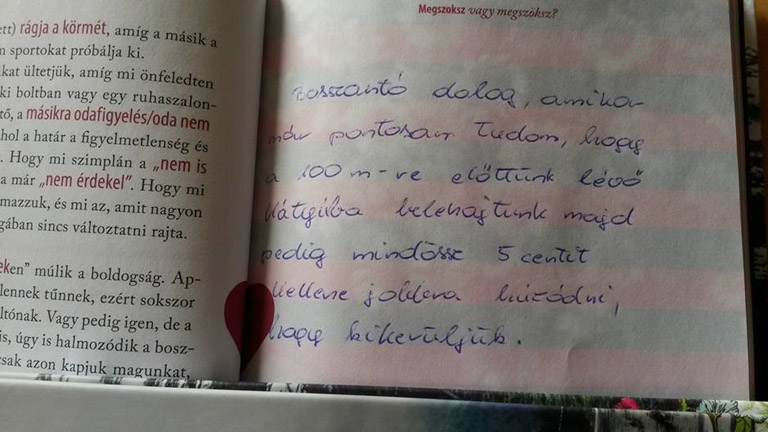 Megszoksz vagy megszöksz?
ett) rágja a körmét, amíg a másik a
n sportokat próbálja ki.
lkat ültetjük, amíg mi önfeledten
ki boltban vagy egy ruhaszalon-
tő, a másikra odafigyelés/oda nem
hol a határ a figyelmetlenség és
. Hogy mi szimplán a „nem is
a már „nem érdekel”. Hogy mi
mazzuk, és mi az, amit nagyon
gában sincs változtatni rajta.
eken” múlik a boldogság. Ap-
lennek tűnnek, ezért sokszor
ltónak. Vagy pedig igen, de a
is, úgy is halmozódik a bosz-
csak azon kapjuk magunkat,
Bosszantó dolog, amikor
már pontosan tudom, hogy
a 100 m-re előttünk lévő
kátyúba belehajtunk majd
pedig mindössz 5 centit
kellene jobbra húzódni,
hogy kikerüljük.